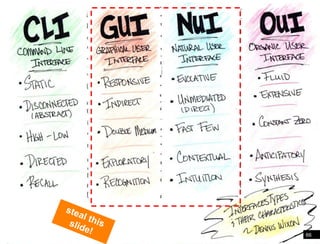 CLI
COMMAND LINE
INTERFACE
• STATIC
• DISCONNECTED
(ABSTRACT)
• HIGH - LOW
• DIRECTED
• RECALL
GUI
GRAPHICAL USER
INTERFACE
• RESPONSIVE
• INDIRECT
• DOUBLE MEDIUM
• EXPLORATORY
• RECOGNITION
NUI
NATURAL USER
INTERFACE
• EVOCATIVE
• UNMEDIATED
(DIRECT)
• FAST FEW
• CONTEXTUAL
• INTUITION
OUI
ORGANIC USER
INTERFACE
• FLUID
• EXTENSIVE
• CONSTANT ZERO
• ANTICIPATORY
• SYNTHESIS
steal this
slide!
INTERFACES TYPES
& THEIR CHARACTERISTICS
~ DENNIS WIXON